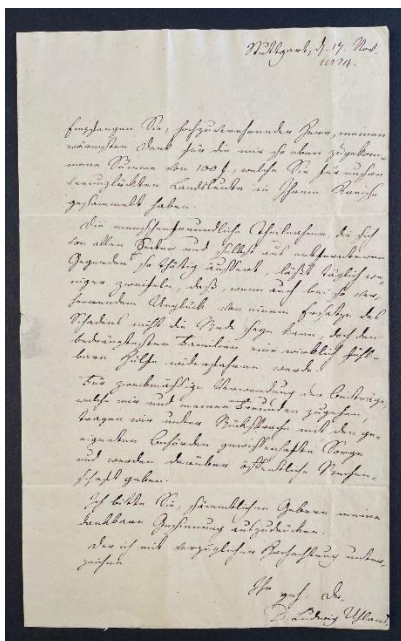 Stuttgart, d. 17. Nov.
1824.
Empfangen Sie, hochzuverehrender Herr, meinen
wärmsten Dank für die mir so eben zugekom-
mene Summe von 100 f, welche Sie für unsre
verunglückten Landsleute in Ihrem Kreise
gesammelt haben.
Die menschenfreundliche Theilnahme, die sich
von allen Seiten und selbst aus entfernteren
Gegenden so thätig äussert, läßt täglich we-
niger zweifeln, daß, wenn auch bei so ver-
heerendem Unglück von einem Ersatze des
Schadens nicht die Rede seyn kann, doch den
bedrängtesten Familien eine wirklich fühl-
bare Hülfe widerfahren werde.
Für zweckmäßige Verwendung der Beiträge,
welche mir und meinen Freunden zugehen,
tragen wir unter Rücksprache mit den ge-
eigneten Behörden gewissenhafte Sorge
und werden darüber öffentliche Rechen-
schaft geben.
Ich bitte Sie, sämmtlichen Gebern meine
dankbare Gesinnung auszudrücken.
Der ich mit vorzüglicher Hochachtung unter-
zeichne
Ihr geh. Dr.
D. Ludwig Uhland